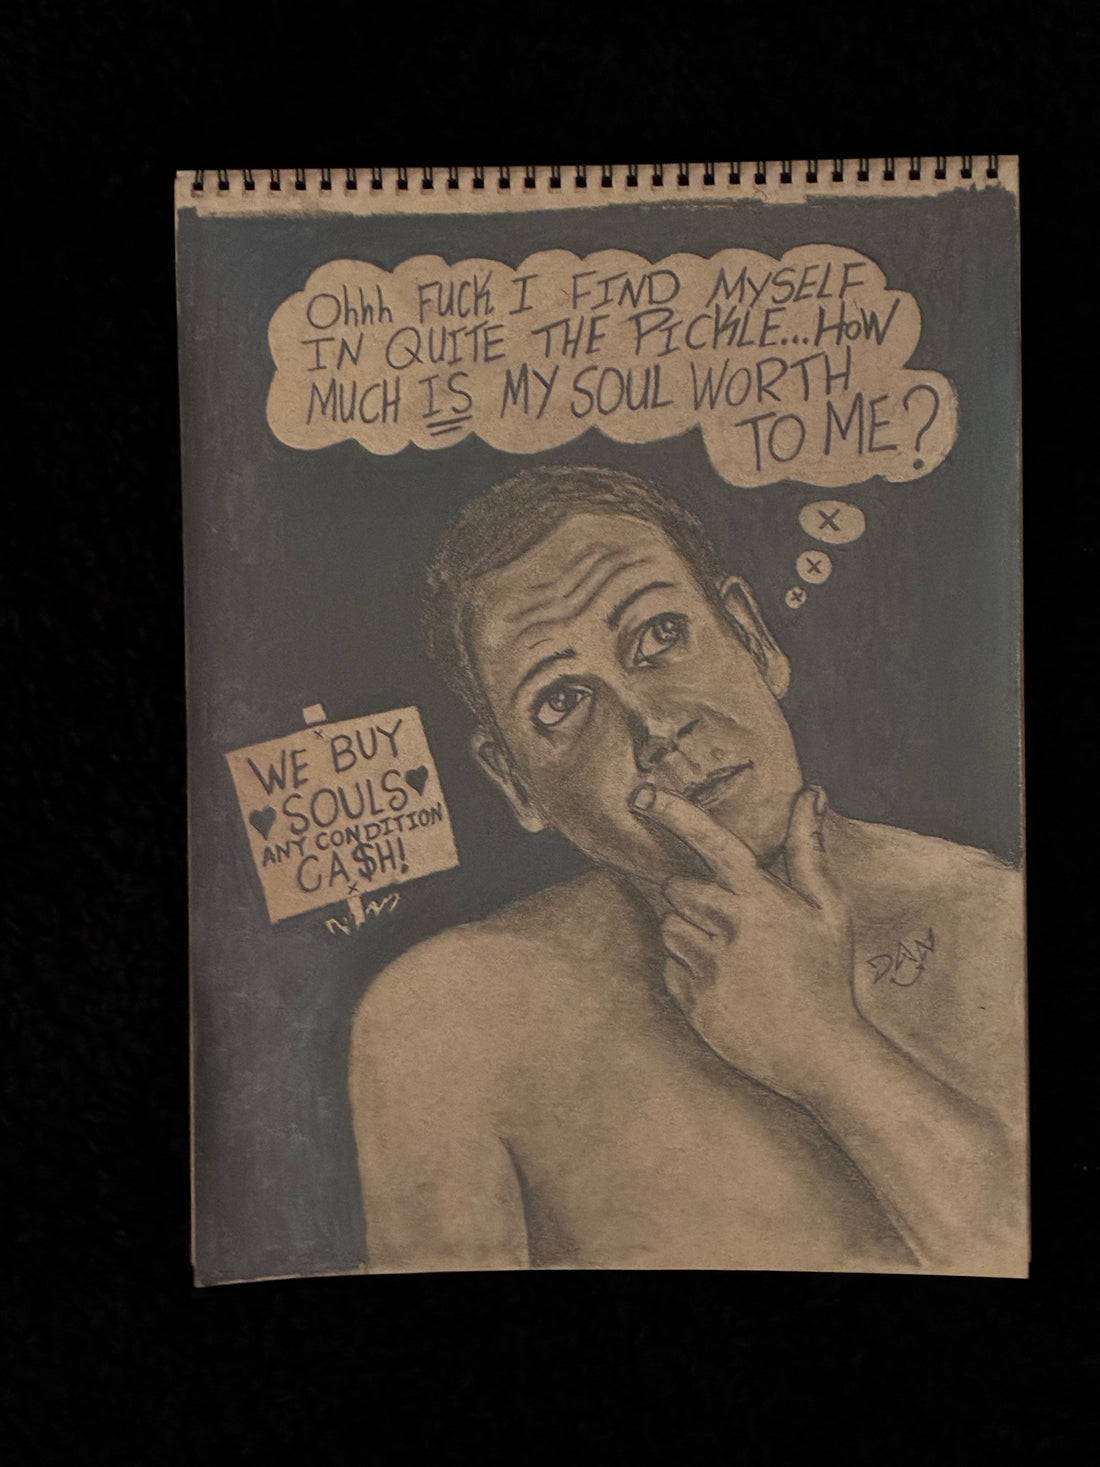 Ohhh FUCK I FIND MYSELF
IN QUITE THE PICKLE...HOW
MUCH IS MY SOUL WORTH
TO ME?
X
X
X
WE BUY
♥SOULS♥
ANY CONDITION
CA$H!
DAN